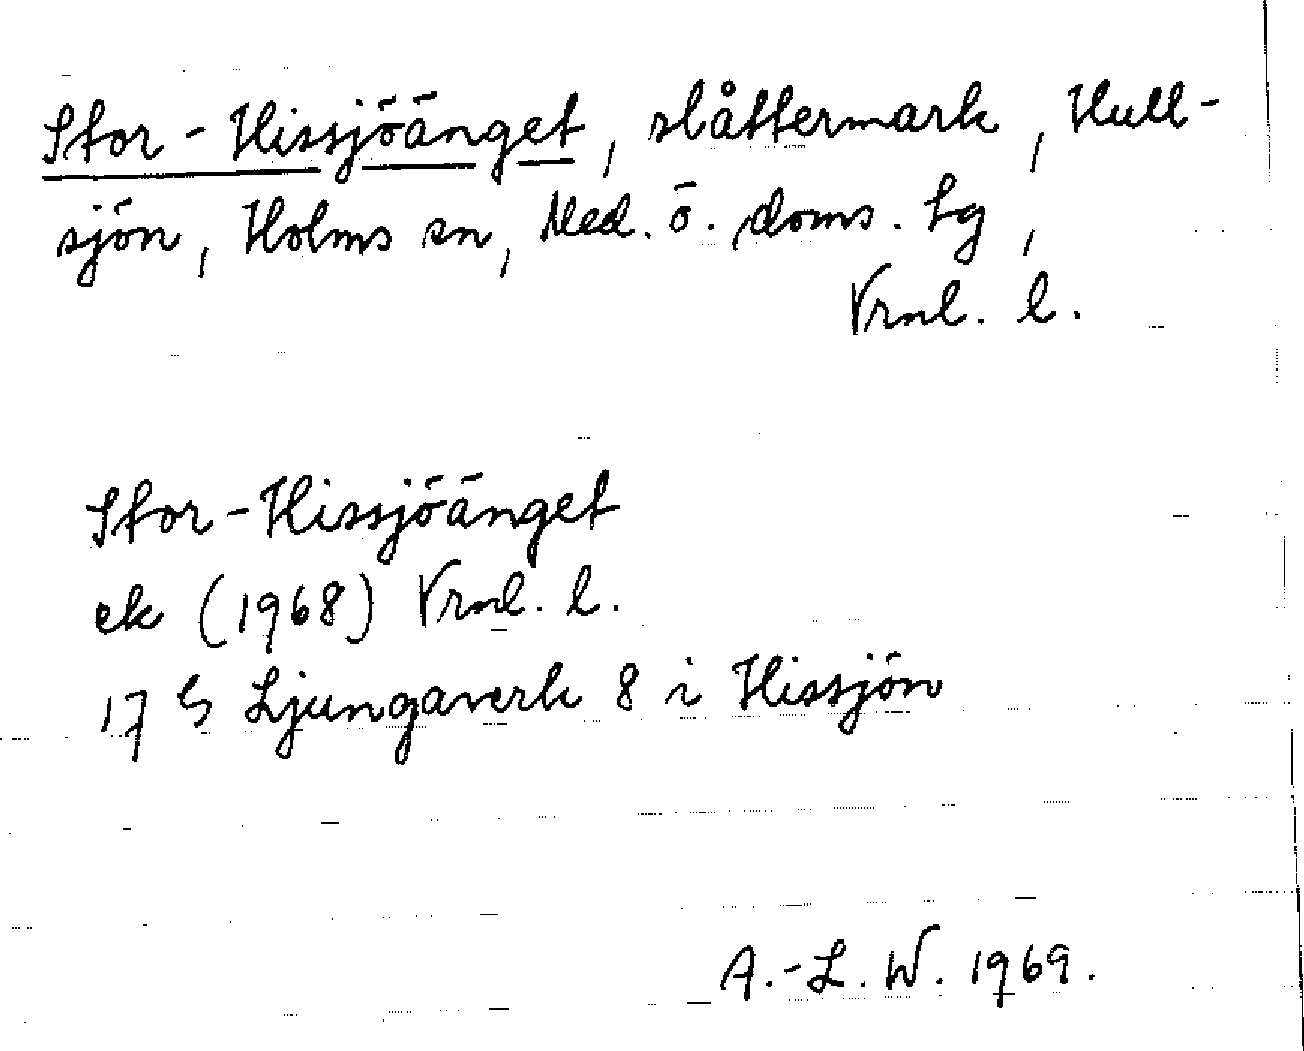 Stor-Hissjöänget, slåttermark, Hull-
sjön, Holms sn, Med. ö. doms. Lg,
Vrnl. l.
Stor-Hissjöänget
ek (1968) Vrnl. l.
17 G Ljungaverk 8 i Hissjön
A.-L. W. 1969.